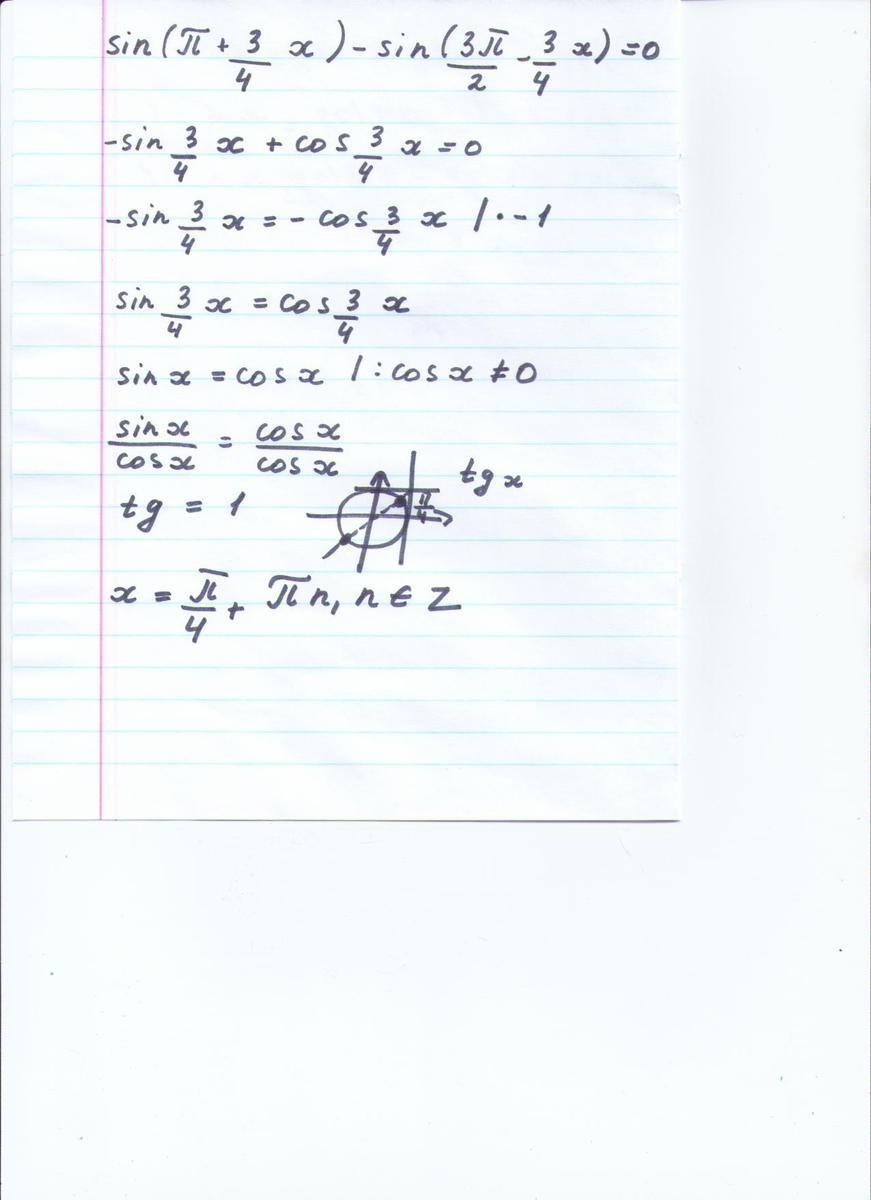 sin(π + 3/4 x) - sin(3π/2 - 3/4 x) = 0
-sin 3/4 x + cos 3/4 x = 0
-sin 3/4 x = - cos 3/4 x | · - 1
sin 3/4 x = cos 3/4 x
sin x = cos x | : cos x ≠ 0
sin x/cos x = cos x/cos x
tg x
π/4
tg = 1
x = π/4 + πn, n ∈ Z